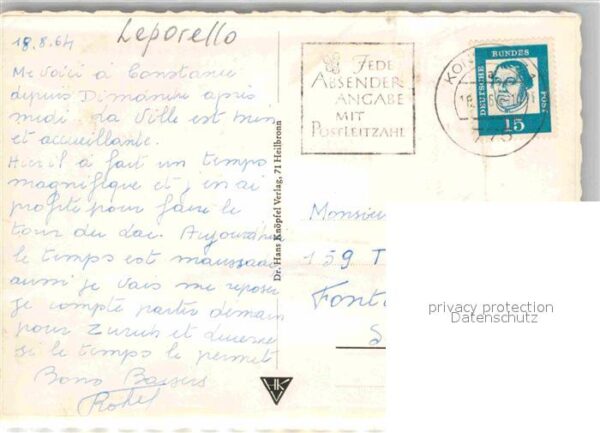 18.8.64
Leporello
Me voici à Constance
depuis Dimanche après
midi. La Ville est
et accueillante.
Hier il a fait un temps
magnifique et j'en ai
profité pour faire le
tour du lac. Aujourd'hui
le temps est maussade
aussi je vais me reposer
je compte partir demain
pour Zurich et Lucerne
si le temps le permet
Bons Baisers
Dr. Hans Knöpfel Verlag, 71 Heilbronn
HK
JEDE
ABSENDER-
ANGABE
MIT
POSTLEITZAHL
KON
775
DEUTSCHE BUNDESPOST
15
Monsieur
159 T
Font
S
privacy protection
Datenschutz